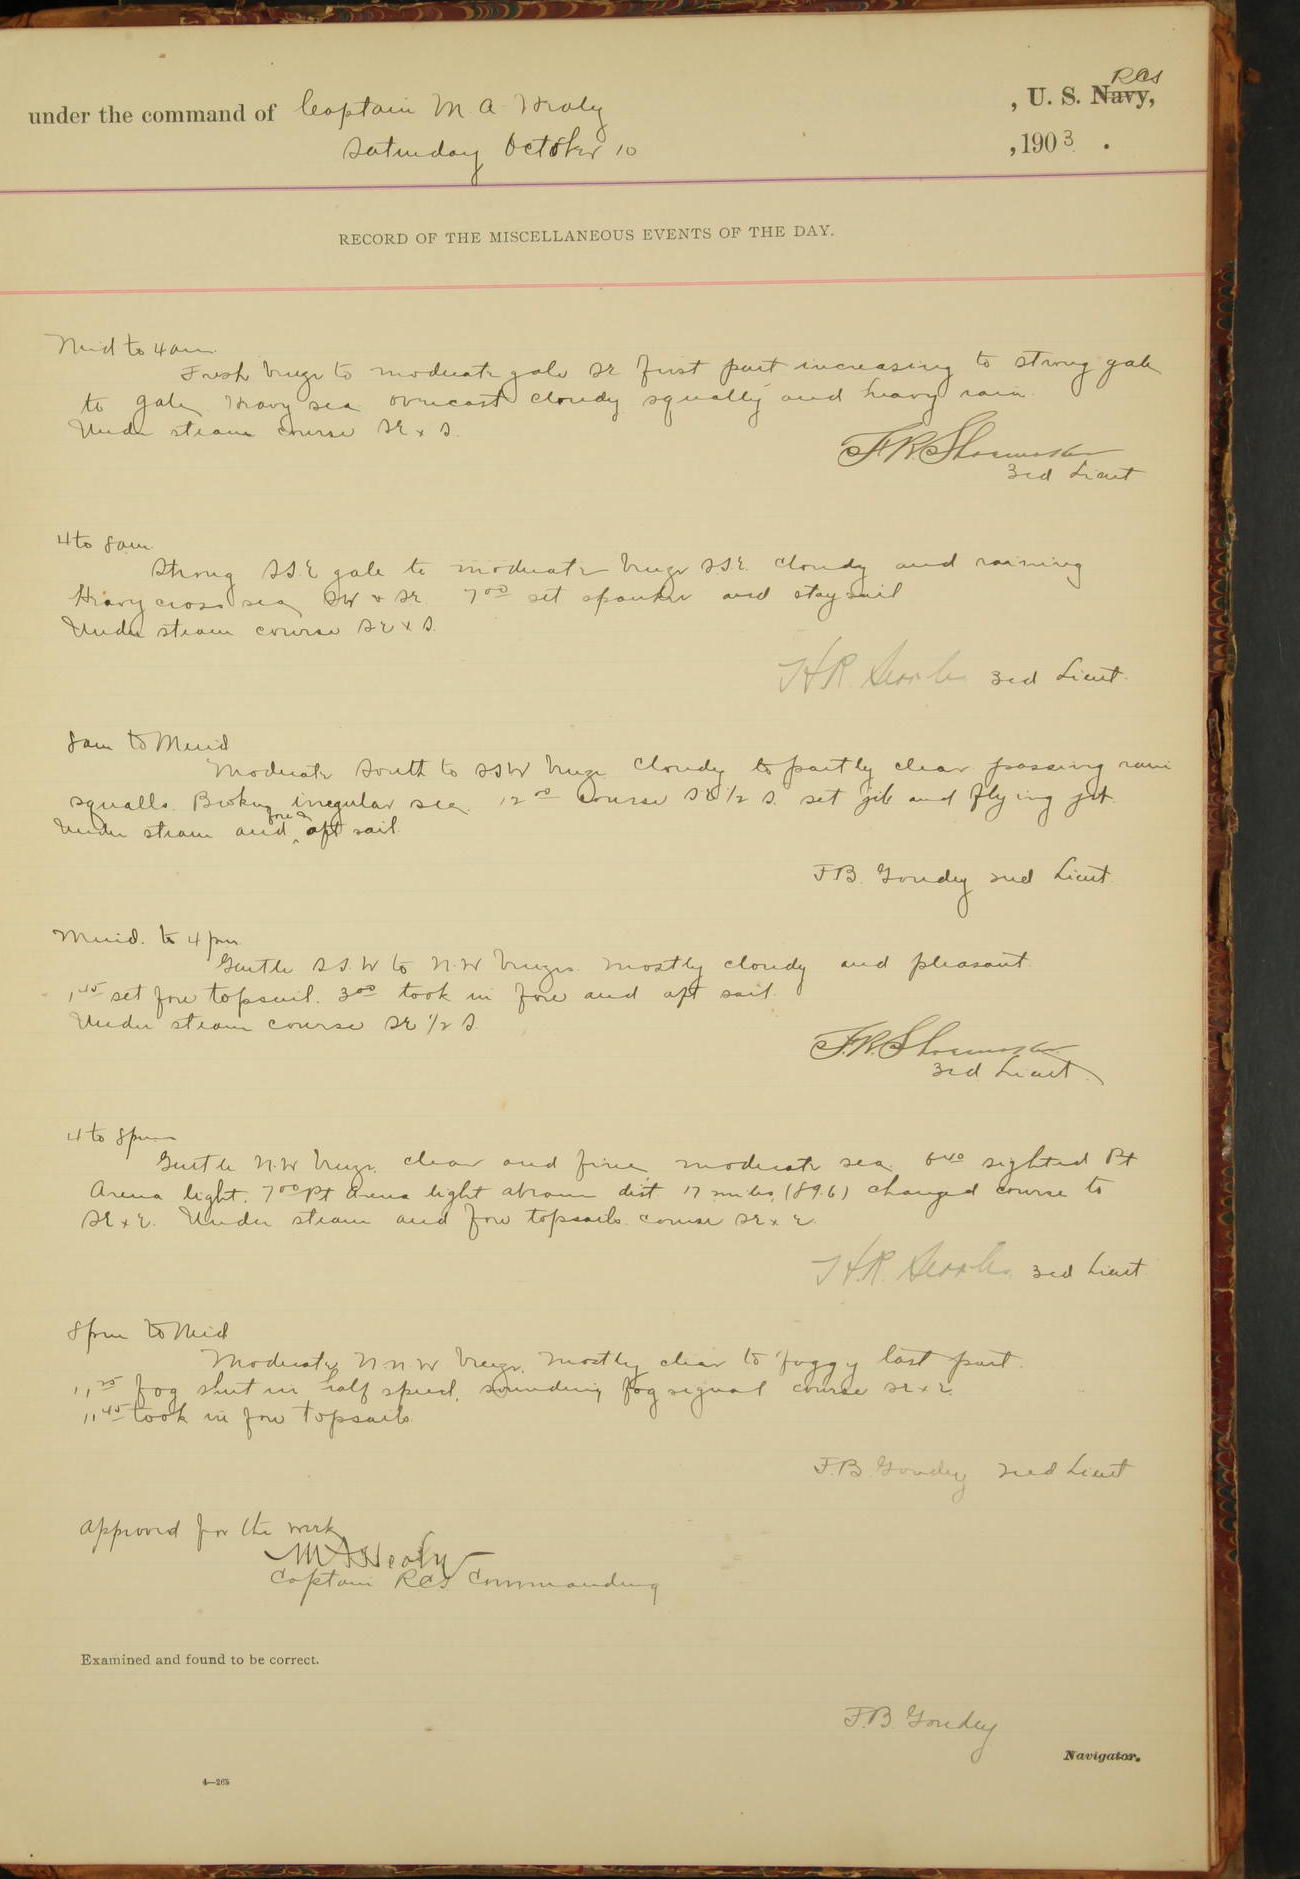 under the command of Captain M. A. Healy , U. S. Navy, RCS
Saturday October 10 , 1903 .
RECORD OF THE MISCELLANEOUS EVENTS OF THE DAY.
Mid to 4 am.
Fresh breeze to moderate gale SE first part increasing to strong gale
to gale. Heavy sea overcast cloudy squally and heavy rain.
Under steam course SE x S.
F R Shoemaker
3rd Lieut
4 to 8am
Strong SSE gale to moderate breeze SSE. cloudy and raining
Heavy cross sea SW & SE. 7 00 set spanker and staysail
Under steam course SE x S.
H R Searles 3rd Lieut.
8am to Merid
Moderate South to SSW breeze cloudy to partly clear passing rain
squalls. Broken irregular sea 12 00 course SE 1/2 S. set jib and flying jib.
Under steam and fore & aft sail.
F B. Goudey 2nd Lieut.
Merid. to 4 pm
Gentle SSW to N.W breezes. mostly cloudy and pleasant.
1 45 set fore topsail. 3 00 took in fore and aft sail.
Under steam course SE 1/2 S
F.R. Shoemaker
3rd Lieut.
4 to 8pm
Gentle N.W breeze, clear and fine, moderate sea. 6 40 sighted Pt
Arena light. 7 00 Pt Arena light abeam dist. 17 miles, (89.6) changed course to
SE x E. Under steam and fore topsails. course SE x E.
H.R. Searles, 3rd Lieut
8pm to Mid
Moderate N N W breeze, mostly clear to foggy last part.
11 25 fog shut in half speed, sounding fog signal course SE x E.
11 45 took in fore topsails
F.B. Goudey 2nd Lieut
Approved for the work
M A Healy
Captain RCS Commanding
Examined and found to be correct.
F.B. Goudey
Navigator.
4—265